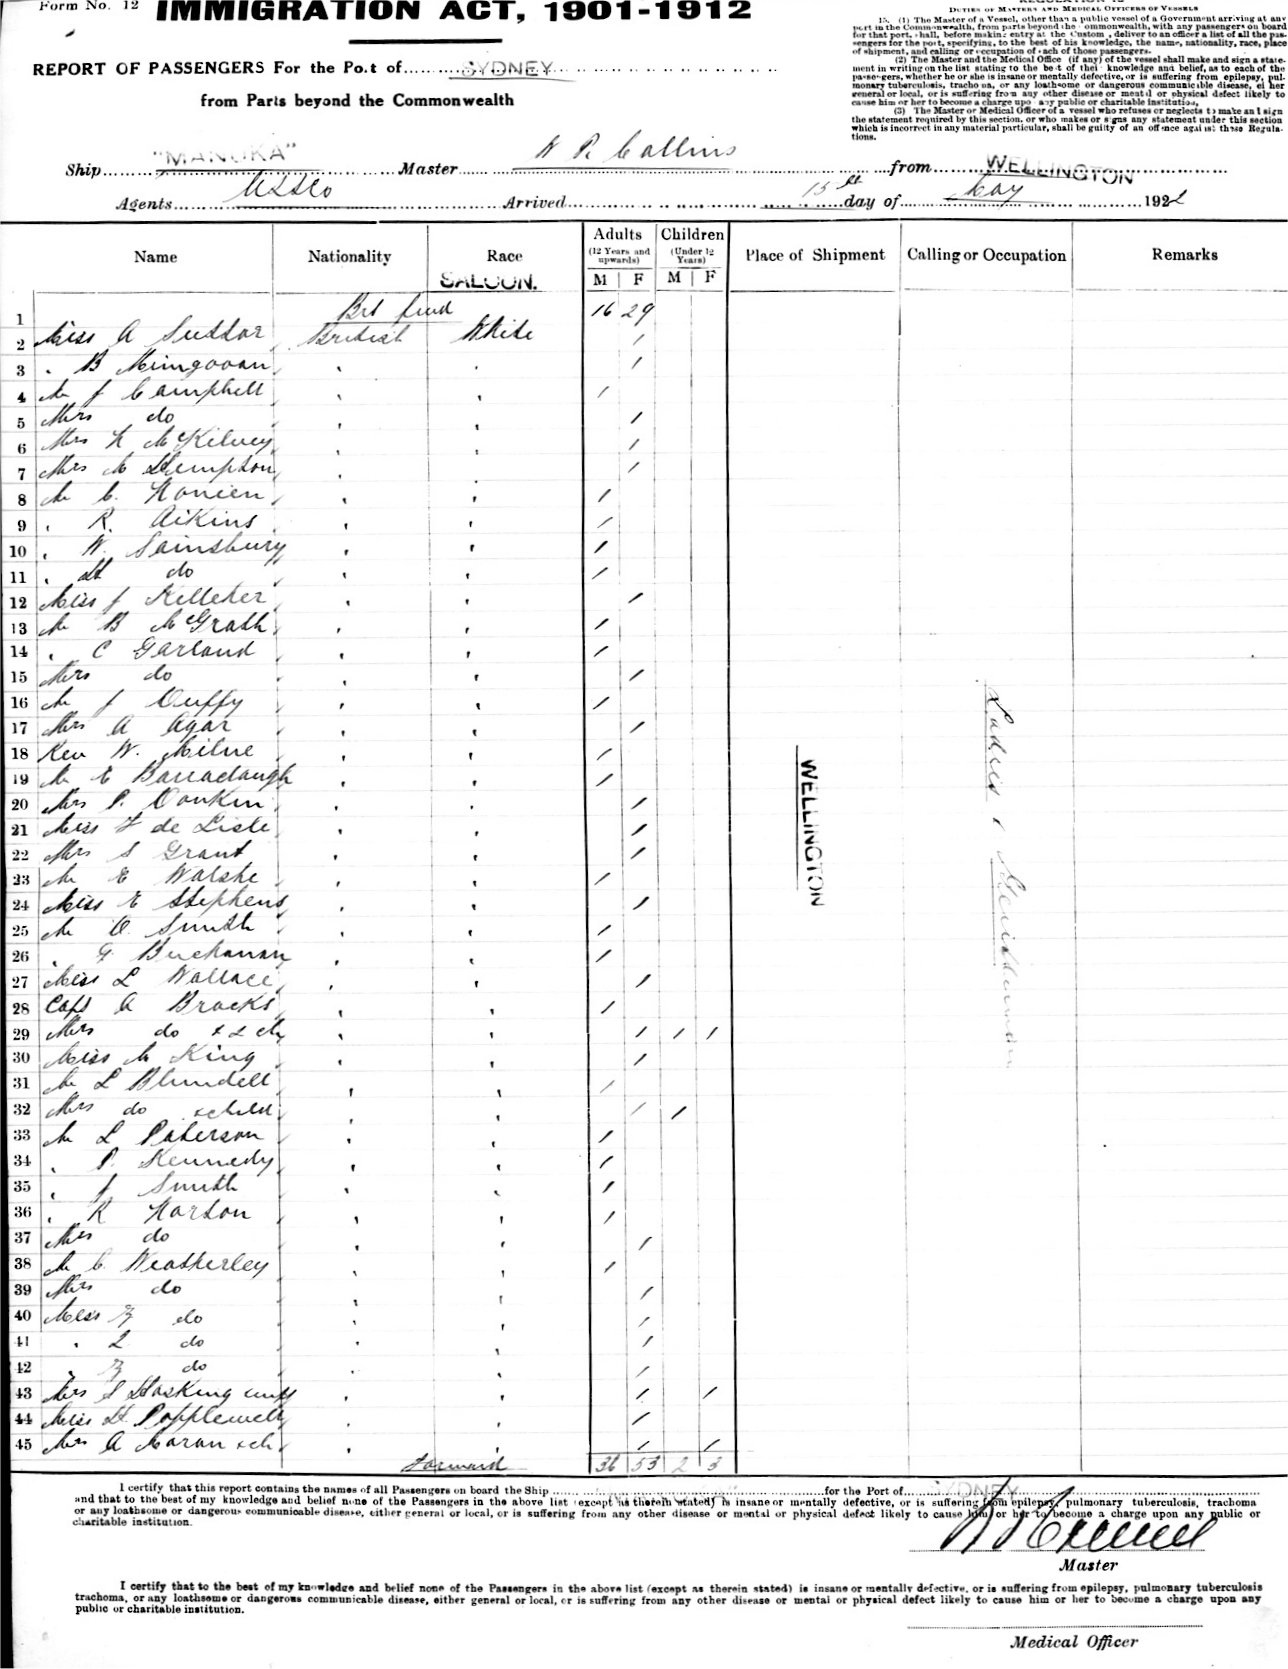 Form No. 12
IMMIGRATION ACT, 1901-1912
REPORT OF PASSENGERS For the Po.t of SYDNEY
from Parts beyond the Commonwealth
DUTIES OF MASTERS AND MEDICAL OFFICERS OF VESSELS
15. (1) The Master of a Vessel, other than a public vessel of a Government arriving at any
port in the Commonwealth, from parts beyond the Commonwealth, with any passengers on board
for that port, shall, before making entry at the Custom, deliver to an officer a list of all the pas-
sengers for the port, specifying, to the best of his knowledge, the name, nationality, race, place
of shipment, and calling or occupation of each of those passengers.
(2) The Master and the Medical Office (if any) of the vessel shall make and sign a state-
ment in writing on the list stating to the best of their knowledge and belief, as to each of the
passengers, whether he or she is insane or mentally defective, or is suffering from epilepsy, pul-
monary tuberculosis, trachoma, or any loathsome or dangerous communicable disease, either
general or local, or is suffering from any other disease or mental or physical defect likely to
cause him or her to become a charge upon any public or charitable institution.
(3) The Master or Medical Officer of a vessel who refuses or neglects to make and sign
the statement required by this section, or who makes or signs any statement under this section
which is incorrect in any material particular, shall be guilty of an offence against these Regula-
tions.
Ship "MANUKA" Master Collins from WELLINGTON
Agents USSCo Arrived 15th day of May 1922
Name Nationality Race Adults Children Place of Shipment Calling or Occupation Remarks
(12 Years and upwards) (Under 12 Years)
SALOON. M F M F
1 Brt fwd 16 29
2 Miss A Suttor British White
3 " B
4 Mr J Campbell
5 Mrs do
6 Mrs McKilvey
7 Mrs M Hempton
8 Mr C.
9 " R. Aikins
10 " W. Sainsbury
11 " H do
12 Miss J Kelleher
13 Mr B McGrath
14 " C Garland
15 Mrs do
16 Mr J Duffy
17 Mrs A Agar
18 Rev W. Milne
19 Mr E Barraclough
20 Mrs P. Donkin
21 Miss F de Lisle
22 Mrs S Grant
23 Mr E Walshe
24 Miss E Stephens
25 Mr O. Smith
26 " G Buchanan
27 Miss L Wallace
28 Capt A Brooks
29 Mrs do & 2 ch
30 Miss M King
31 Mr L Blundell
32 Mrs do & child
33 Mr L Paterson
34 " P. Kennedy
35 " J Smith
36 " R Horton
37 Mrs do
38 Mr C. Weatherley
39 Mrs do
40 Miss do
41 " L do
42 " do
43 Mrs S Hosking
44 Miss H. Popplewell
45 Mrs A Moran & ch
WELLINGTON
Ladies & Gentlemen
Forward 36 53 2 3
I certify that this report contains the names of all Passengers on board the Ship for the Port of SYDNEY
and that to the best of my knowledge and belief none of the Passengers in the above list (except as therein stated) is insane or mentally defective, or is suffering from epilepsy, pulmonary tuberculosis, trachoma
or any loathsome or dangerous communicable disease, either general or local, or is suffering from any other disease or mental or physical defect likely to cause him or her to become a charge upon any public or
charitable institution.
Master
I certify that to the best of my knowledge and belief none of the Passengers in the above list (except as therein stated) is insane or mentally defective, or is suffering from epilepsy, pulmonary tuberculosis
trachoma, or any loathsome or dangerous communicable disease, either general or local, or is suffering from any other disease or mental or physical defect likely to cause him or her to become a charge upon any
public or charitable institution.
Medical Officer